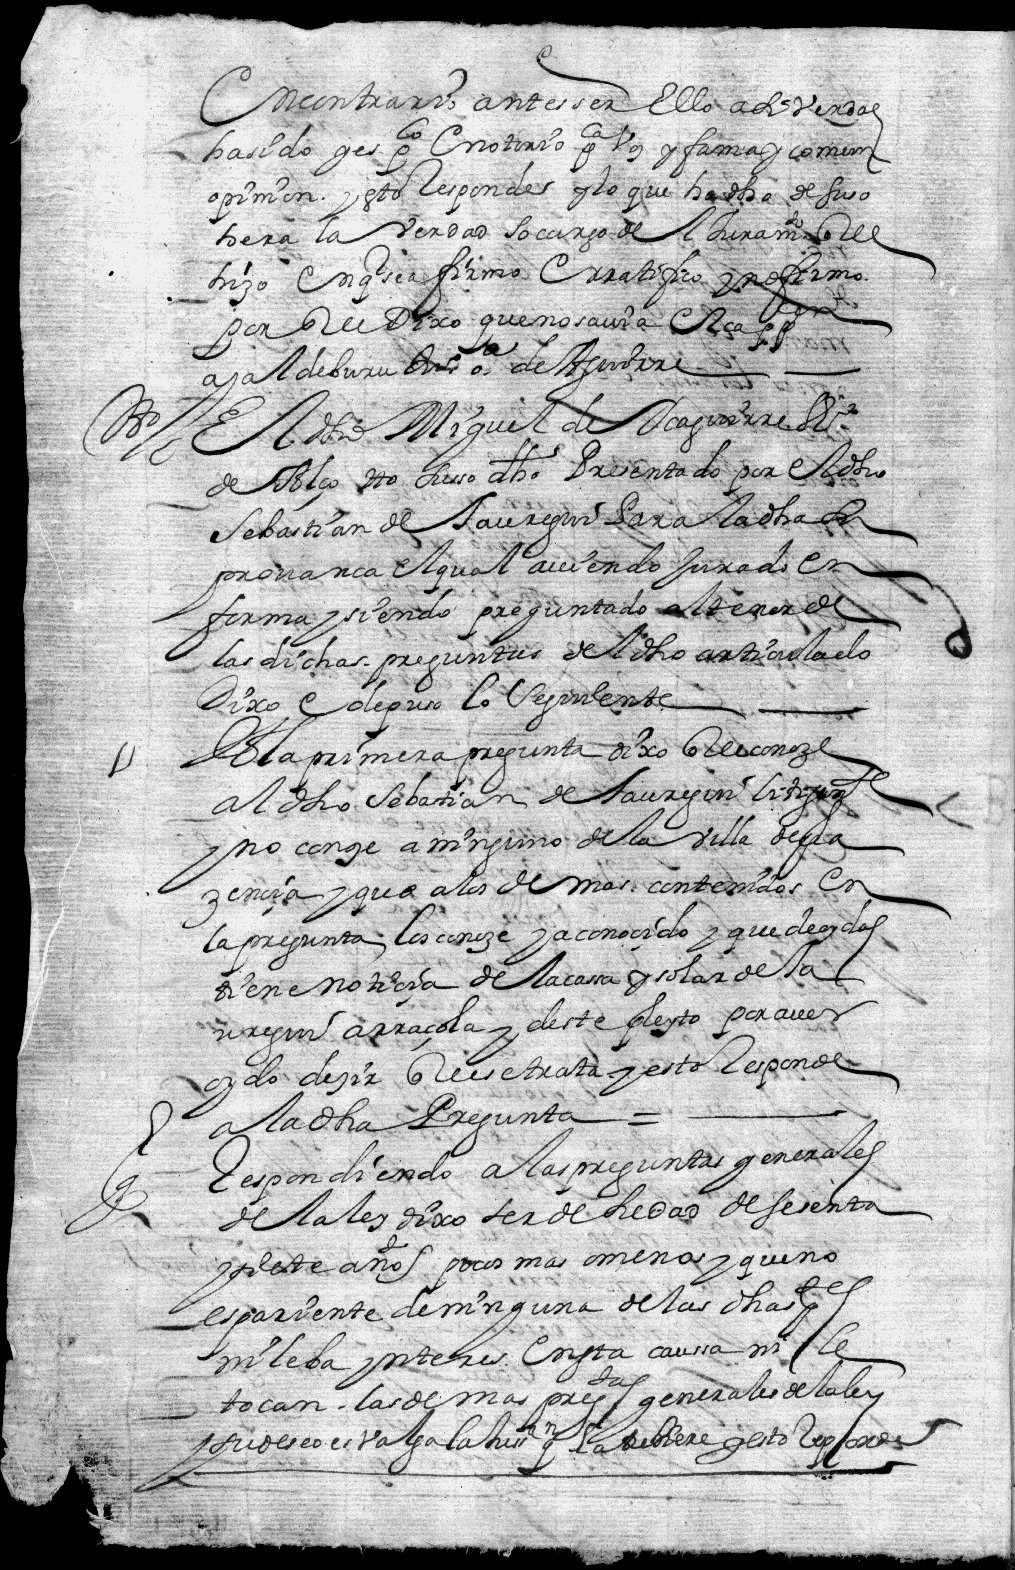 En contrario antes ser ello a dho verdad
ha sido y es pco e notorio pca voz y fama y comun
opinion. y esto Responde y lo que ha dho de suso
hera la verdad so cargo del Juramto que
hizo en que se afirmo e rratifico y no firmo
por que Dixo que no savia
de Aguirre
El dho Miguel de
de tto suso dho Presentado por el dho
Sebastian de Jauregui Para la dha
provanca el qual aviendo Jurado en
forma y siendo preguntado al tenor de
las dichas preguntas del dho articulado
Dixo e depuso lo Seguiente
1 A la primera pregunta dixo que conoze
al dho Sebastian de Jauregui litigante
y no conoze a ninguno de la villa de pla
zencia y que a los de mas contenidos en
la pregunta los conoze y a conocido y que de oydas
tiene noticia de la cassa y solar de Ja
uregui arraçola y deste pleyto por aver
oydo dezir que se trata y esto Responde
a la dha Pregunta =
Respondiendo a las preguntas generales
de la ley dixo ser de hedad de sesenta
y siete años poco mas o menos y que no
es pariente de ninguna de las dhas ptes
ni leba ynteres en esta caussa ni le
tocan las de mas pregtas generales de la ley
y su deseo es valga la justa a quien la tubiere y esto Responde